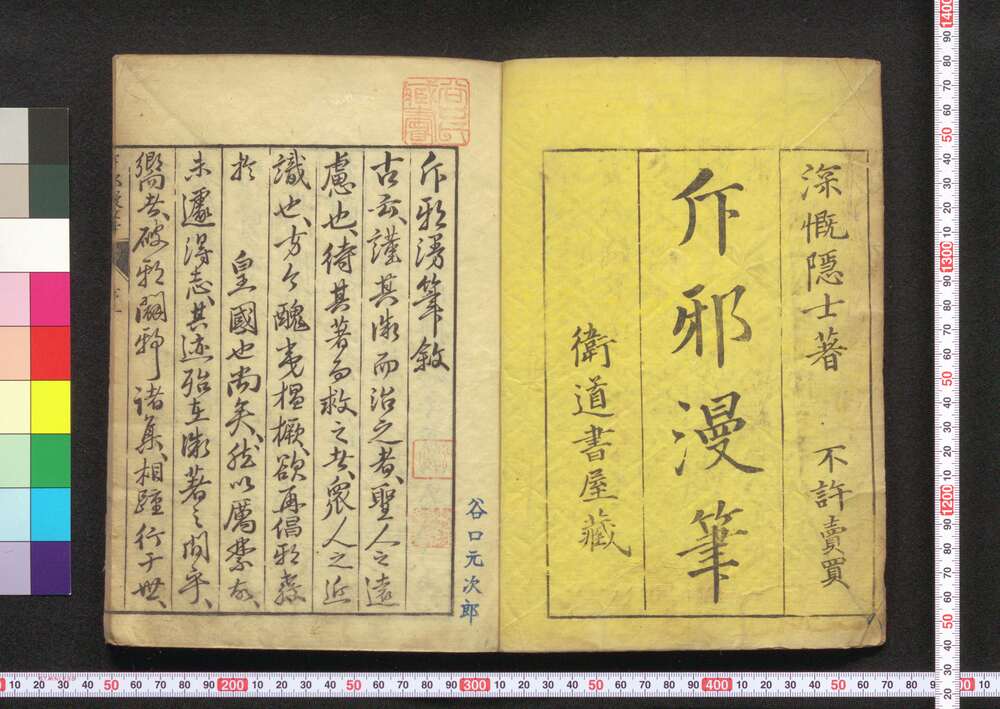 深慨隠士著 不許賣買
斥邪漫筆
衛道書屋藏
斥邪漫筆敘
古云、謹其微而治之者、聖人之遠
慮也、待其著而救之者、衆人之近
識也、方今醜夷猖獗、欲再倡邪教
於 皇國也尚矣、然以厲禁故、
未遽得志、其迹殆在微著之間乎、
嚮者破邪闢邪諸集、相踵行于世、
谷口元次郎